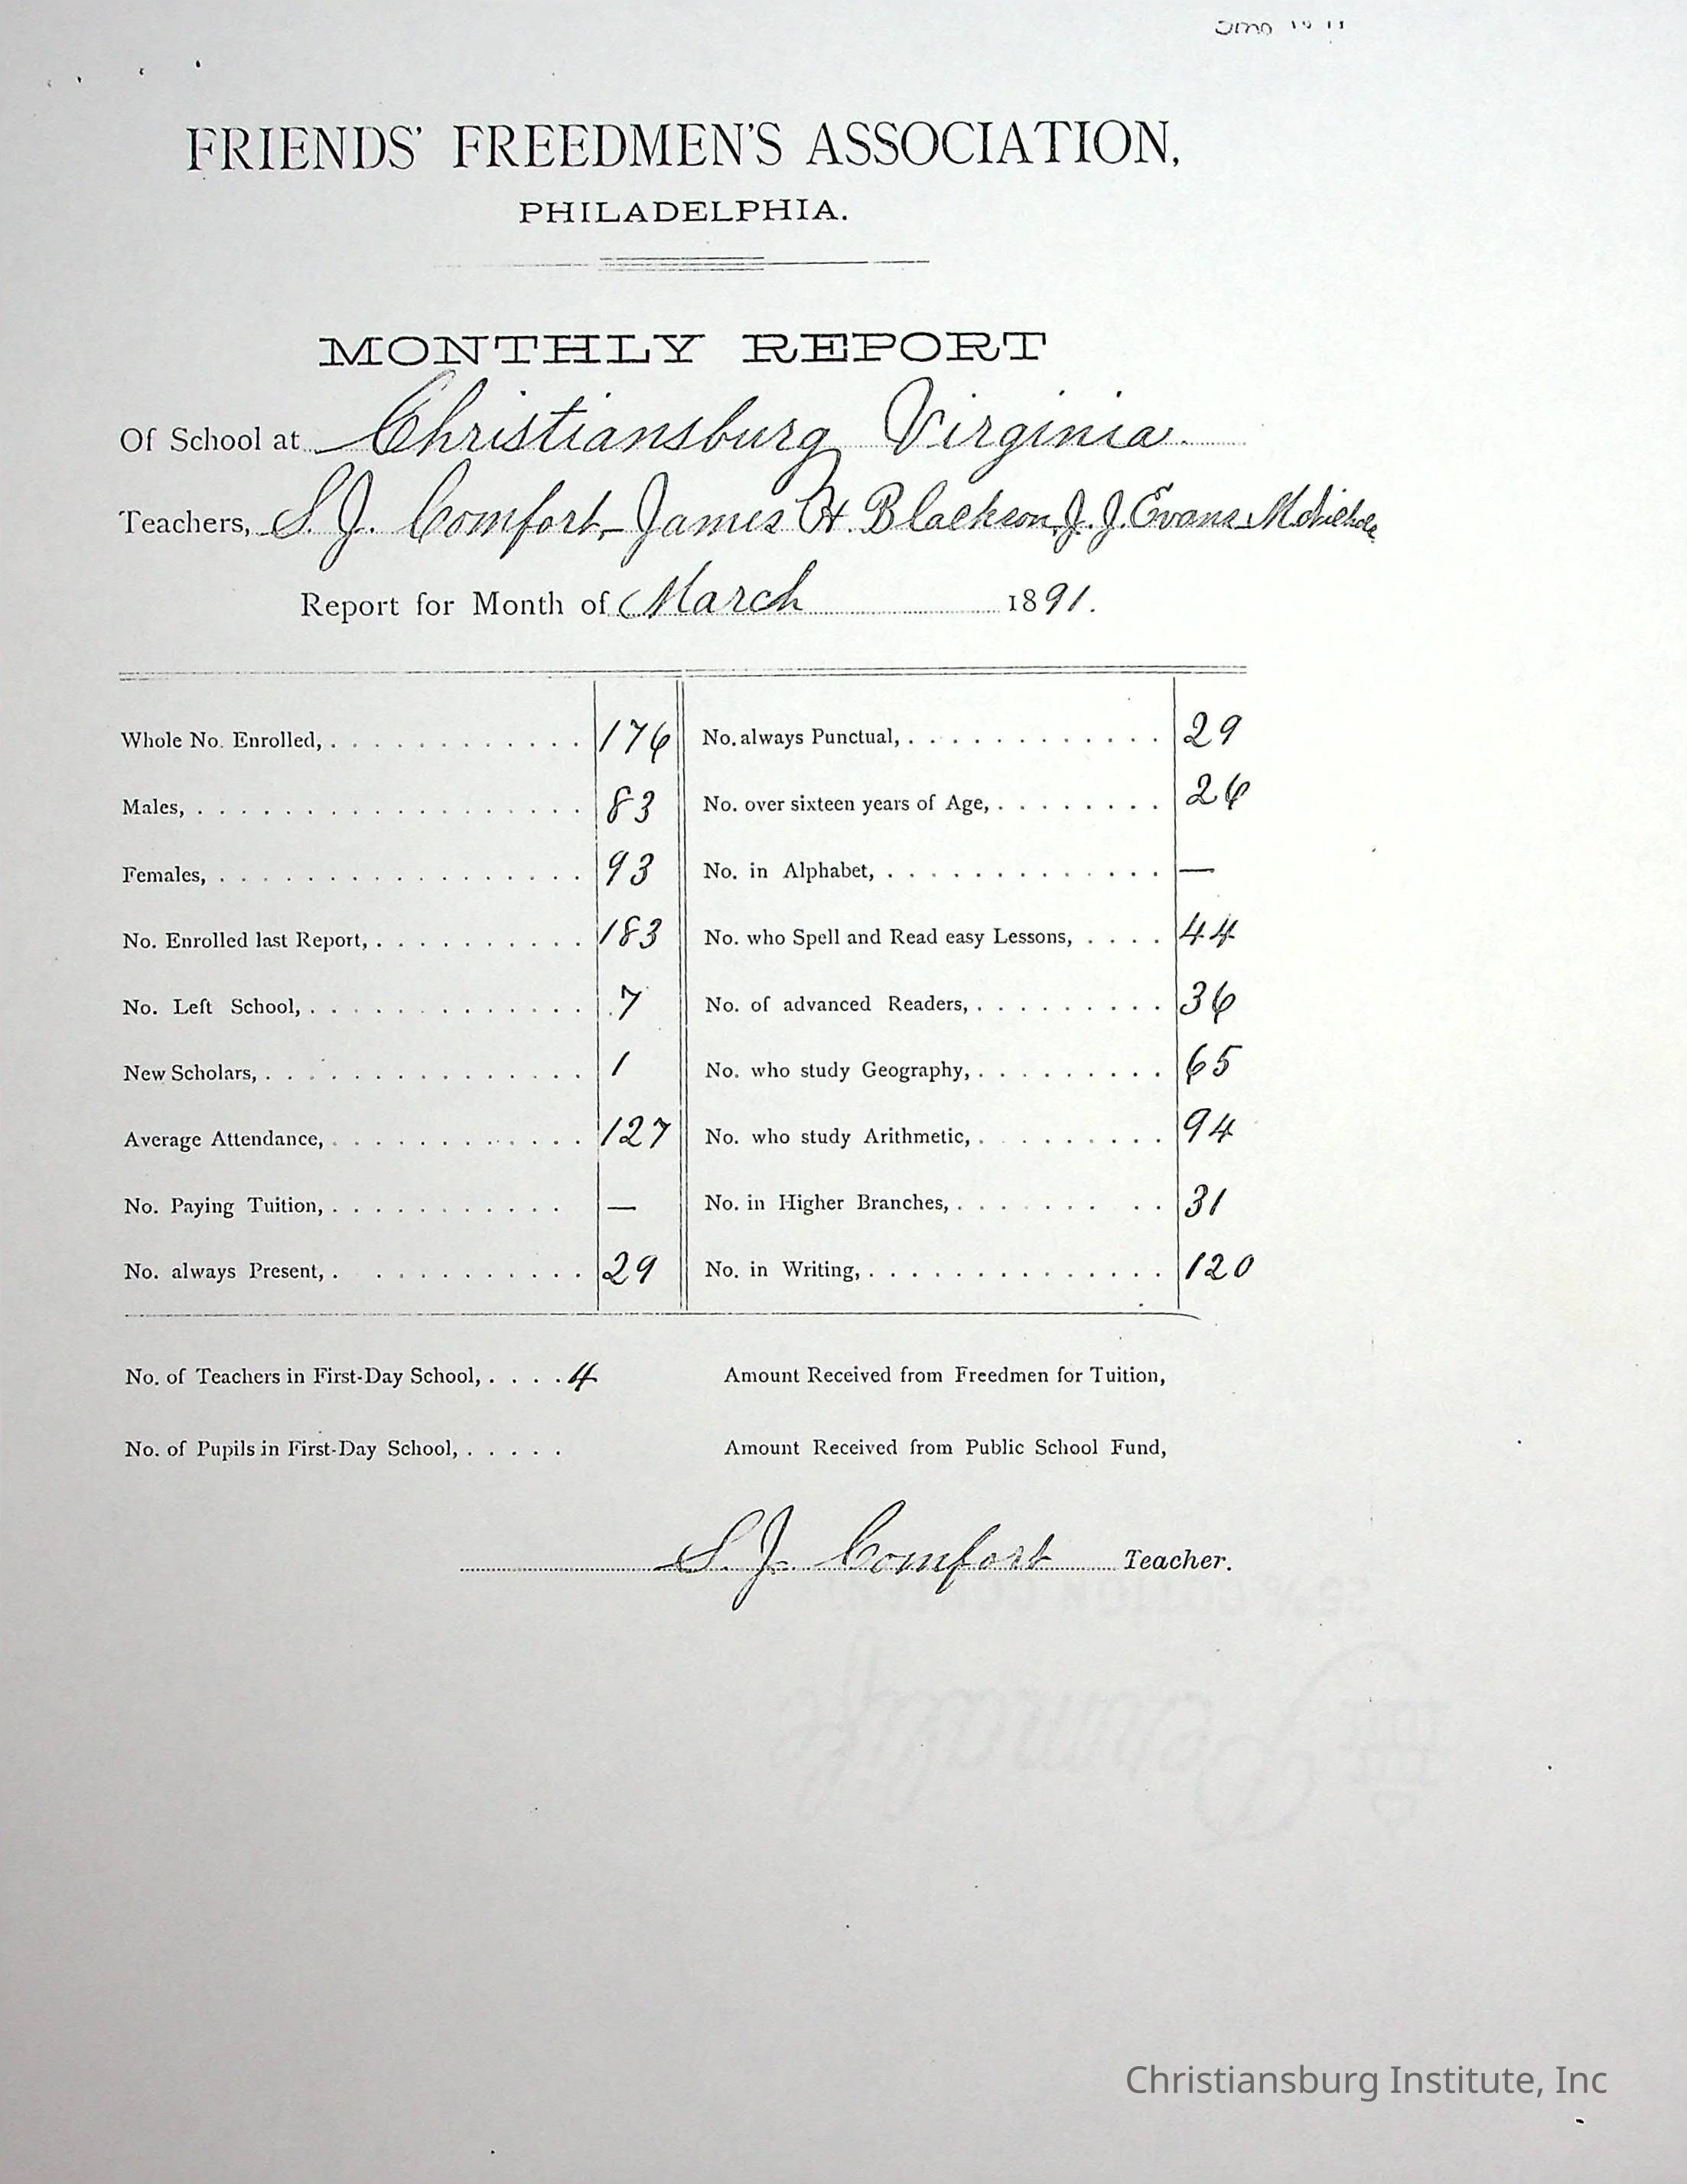 FRIENDS' FREEDMEN'S ASSOCIATION,
PHILADELPHIA.
MONTHLY REPORT
Of School at Christiansburg Virginia.
Teachers, S. J. Comfort, James H. Blackson, J. J. Evans
Report for Month of March 1891.
Whole No. Enrolled, 176 No. always Punctual, 29
Males, 83 No. over sixteen years of Age, 26
Females, 93 No. in Alphabet, —
No. Enrolled last Report, 183 No. who Spell and Read easy Lessons, 44
No. Left School, 7 No. of advanced Readers, 36
New Scholars, 1 No. who study Geography, 65
Average Attendance, 127 No. who study Arithmetic, 94
No. Paying Tuition, — No. in Higher Branches, 31
No. always Present, 29 No. in Writing, 120
No. of Teachers in First-Day School, 4 Amount Received from Freedmen for Tuition,
No. of Pupils in First-Day School, Amount Received from Public School Fund,
S. J. Comfort Teacher.
Christiansburg Institute, Inc